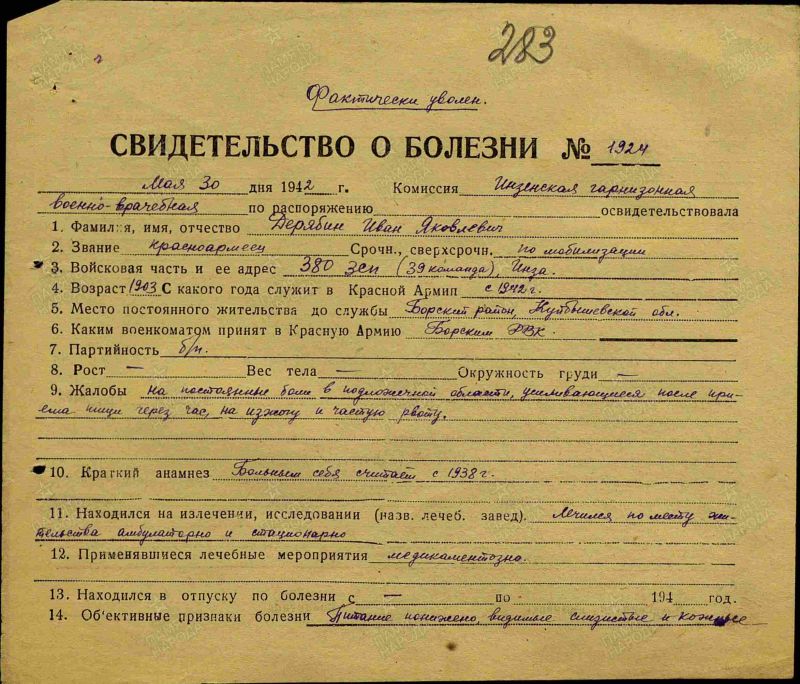 283
Фактически уволен.
СВИДЕТЕЛЬСТВО О БОЛЕЗНИ № 1924
Мая 30 дня 1942 г. Комиссия Инзенская гарнизонная
военно-врачебная по распоряжению освидетельствовала
1. Фамилия, имя, отчество Дерябин Иван Яковлевич
2. Звание красноармеец Срочн., сверхсрочн. по мобилизации
3. Войсковая часть и ее адрес 380 зсп (39 команда), Инза.
4. Возраст 1903 С какого года служит в Красной Армии с 1942 г.
5. Место постоянного жительства до службы Борский район, Куйбышевской обл.
6. Каким военкоматом принят в Красную Армию Борским РВК
7. Партийность б/п.
8. Рост — Вес тела — Окружность груди —
9. Жалобы на постоянные боли в подложечной области, усиливающиеся после при-
ема пищи через час, на изжогу и частую рвоту.
10. Краткий анамнез Больным себя считает с 1938 г.
11. Находился на излечении, исследовании (назв. лечеб. завед). Лечился по месту жи-
тельства амбулаторно и стационарно
12. Применявшиеся лечебные мероприятия медикаментозно.
13. Находился в отпуску по болезни с — по 194 год.
14. Об'ективные признаки болезни Питание понижено, видимые слизистые и кожные
ПАМЯТЬ НАРОДА